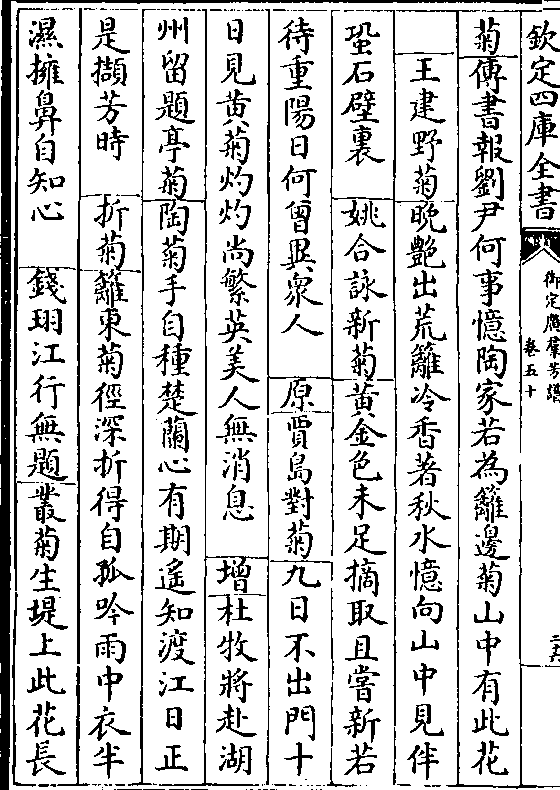 欽定四庫全書
御定廣羣芳譜
卷五十
菊傅書報劉尹何事憶陶家若為籬邊菊山中有此花
王建野菊晚艷出荒籬冷香著秋水憶向山中見伴
蛩石壁裏 姚合詠新菊黃金色未足摘取且嘗新若
待重陽日何曾異衆人 原賈島對菊九日不出門十
日見黃菊灼灼尚繁英美人無消息 增杜牧將赴湖
州留題亭菊陶菊手自種楚蘭心有期遥知渡江日正
是擷芳時 折菊籬東菊徑深折得自孤吟雨中衣半
濕擁鼻自知心 錢珝江行無題叢菊生堤上此花長